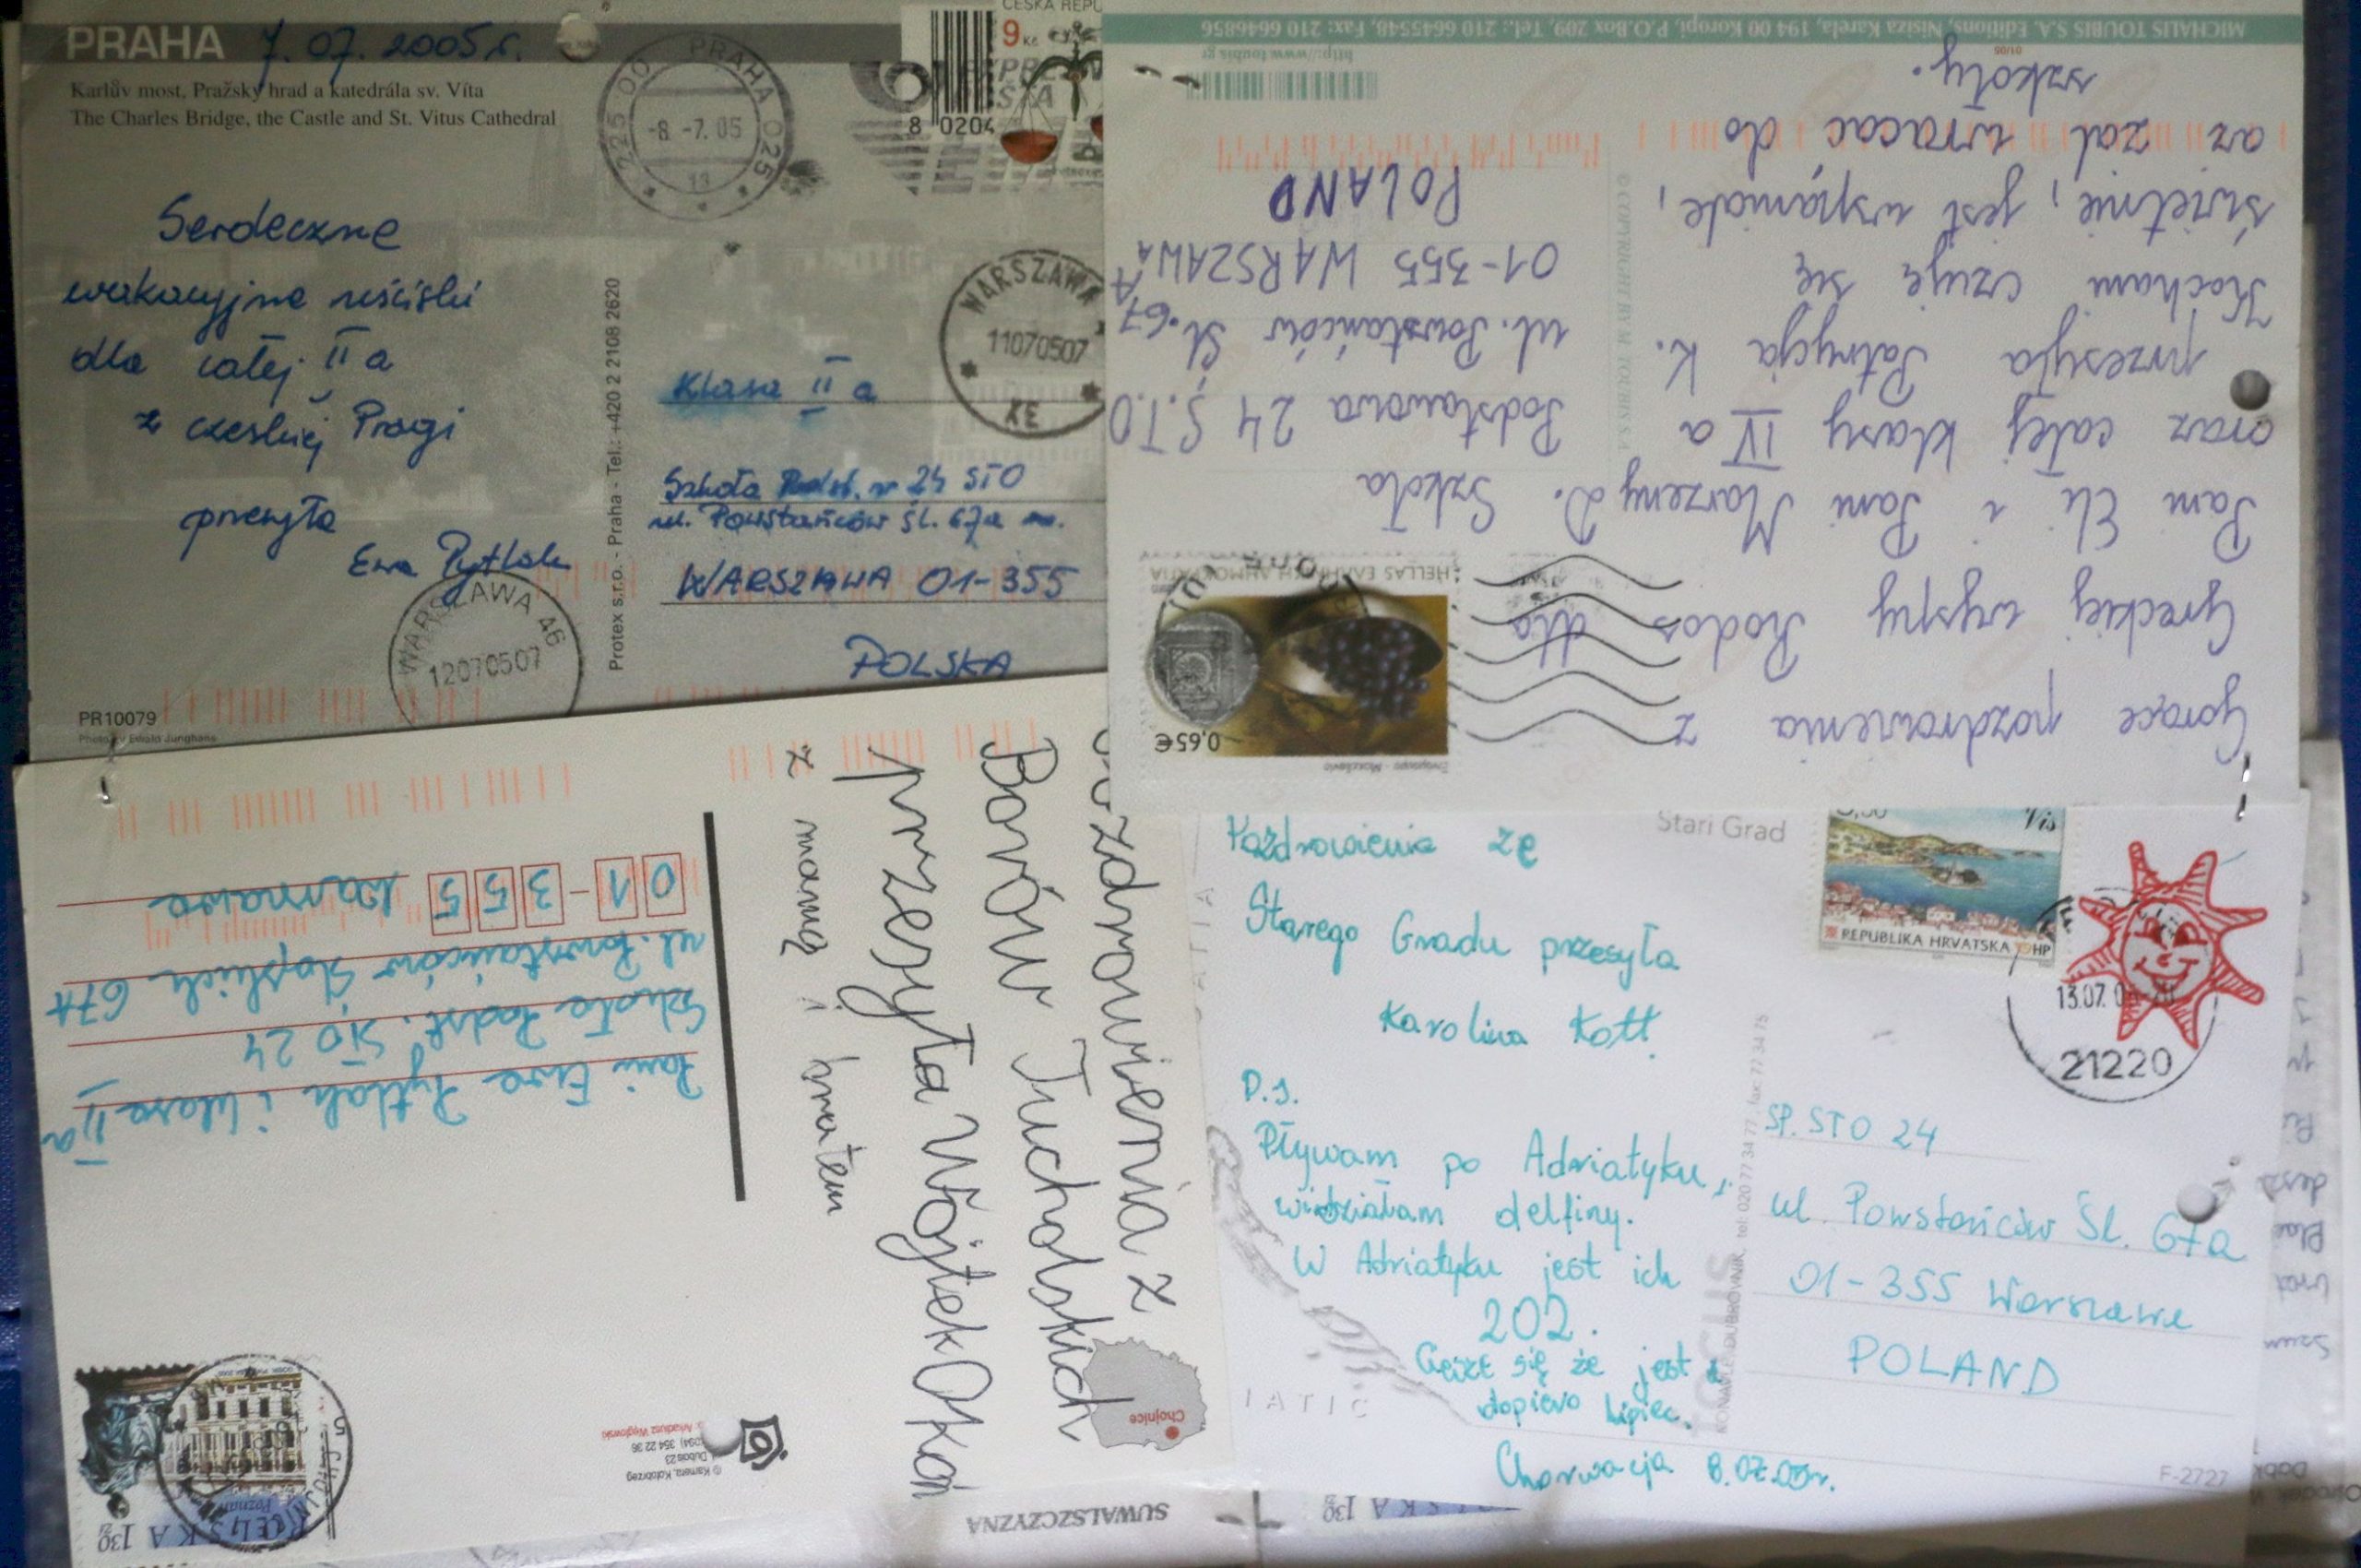 PRAHA 7.07.2005r.
Karlův most, Pražský hrad a katedrála sv. Víta
The Charles Bridge, the Castle and St. Vitus Cathedral
Serdeczne
wakacyjne uściski
dla całej II a
z czeskiej Pragi
przesyła
Ewa Pytlak
PR10079
Protex s.r.o. - Praha - Tel.: +420 2 2108 2620
225 00 PRAHA 025
-8.-7.05
13
ČESKÁ REPU
9 Kč
8 0204
WARSZAWA
11070507
XE
WARSZAWA 46
12070507
Klasa II a
Szkoła Podst. nr 24 STO
ul. Powstańców Śl. 67a
WARSZAWA 01-355
POLSKA
MICHALIS TOUBIS S.A. Editions, Nisiza Karela, 194 00 Koropi, P.O.Box 209, Tel.: 210 6645548, Fax: 210 6646856
http://www.toubis.gr
Gorące pozdrowienia z
Greckiej wyspy Rodos dla
Pani Eli i Pani Marzeny D.
oraz całej klasy IV a
przesyła Patrycja K.
Kocham czuję się
świetnie, jest wspaniale,
aż żal wracać do
szkoły.
© COPYRIGHT BY M. TOUBIS S.A.
0,65€
Szkoła
Podstawowa 24 S.T.O
ul. Powstańców Śl. 67A
01-355 WARSZAWA
POLAND
Pozdrowienia z
Borów Tucholskich
przesyła Wojtek Okoń
z mamą i bratem
Chojnice
Pani Ewa Pytlak i klasa II a
Szkoła Podst. STO 24
ul. Powstańców Śląskich 67A
01-355 Warszawa
© Kamera, Kołobrzeg
Dubois 23
(094) 354 22 36
Arkadiusz Węgłowski
POLSKA 130
Poznań
SUWALSZCZYZNA
Stari Grad
Pozdrowienia ze
Starego Gradu przesyła
Karolina Kott.
P.S.
Pływam po Adriatyku,
widziałam delfiny.
W Adriatyku jest ich
202.
Cieszę się że jest
dopiero lipiec.
Chorwacja 8.07.05r.
Vis
REPUBLIKA HRVATSKA HP
13.07.
21220
SP. STO 24
ul. Powstańców Śl. 67a
01-355 Warszawa
POLAND
F-2727